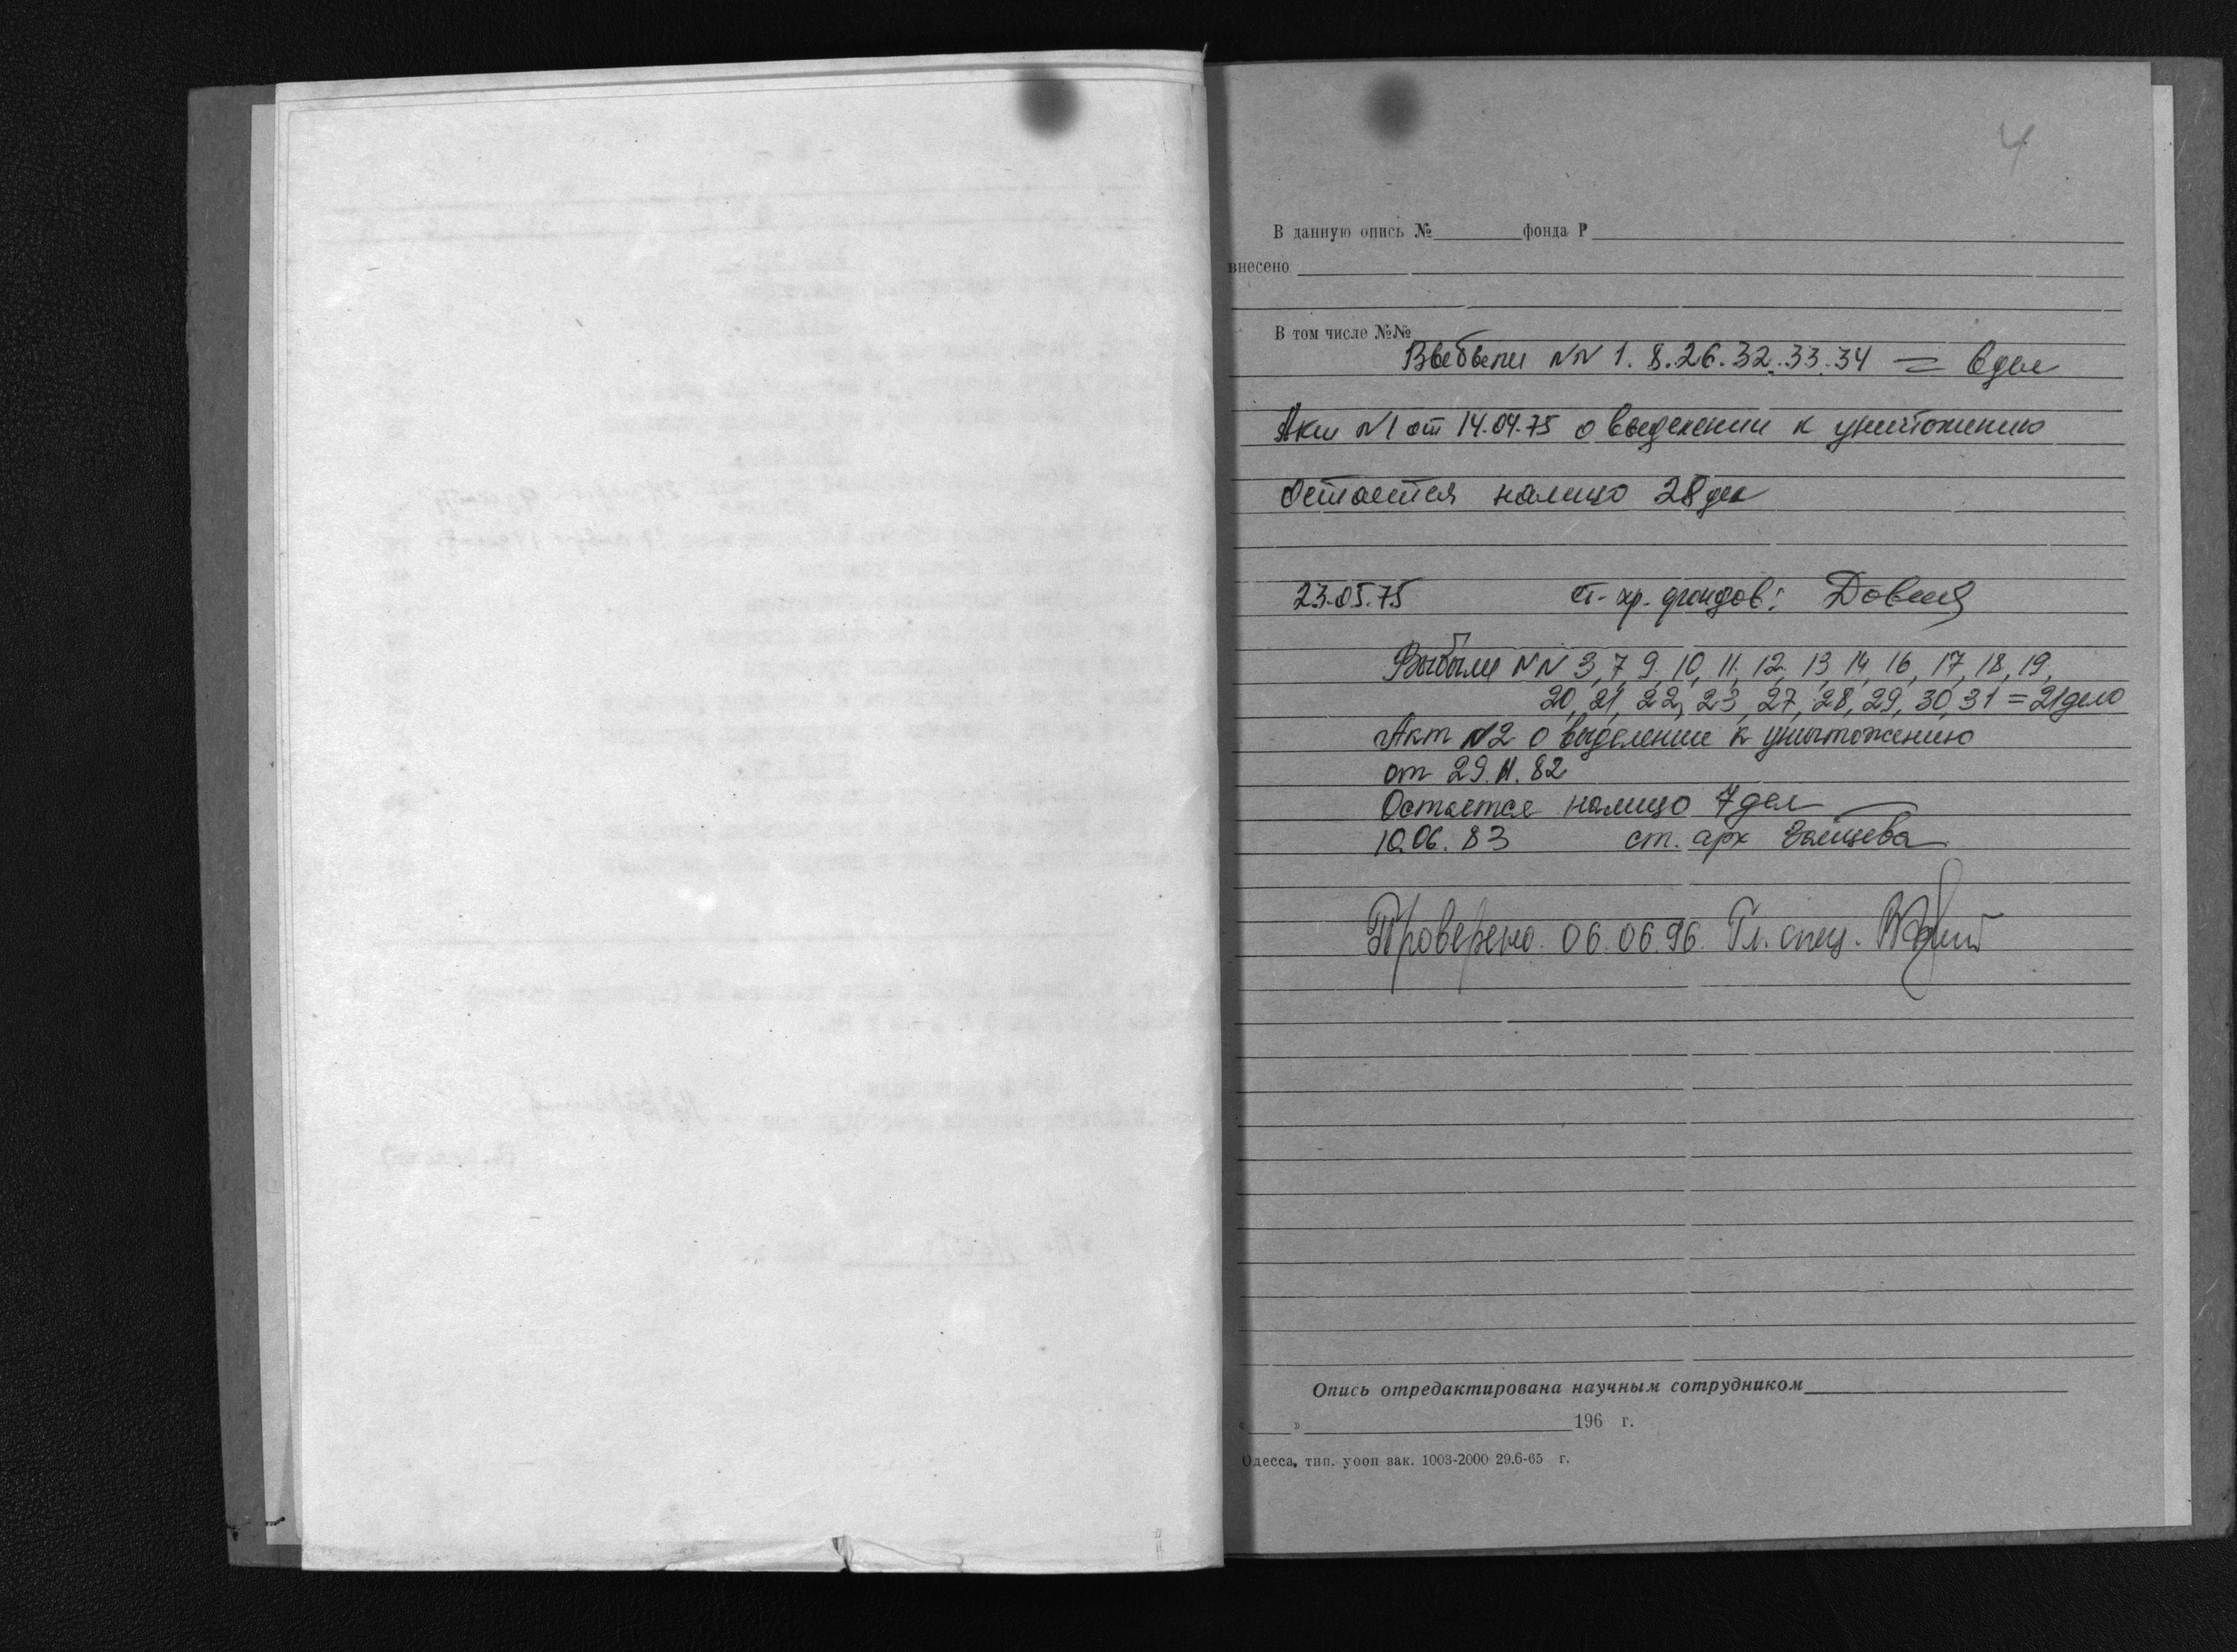 4
В данную опись №________фонда Р
внесено
В том числе №№
Выбыли NN 1. 8. 26. 32. 33. 34 = 6 дел
Акт N1 от 14.04.75 о выделении к уничтожению
Остается налицо 28 дел
23.05.75 ст. хр. фондов:
Выбыли NN 3, 7, 9, 10, 11, 12, 13, 14, 16, 17, 18, 19,
20, 21, 22, 23, 27, 28, 29, 30, 31 = 21 дело
Акт N2 о выделении к уничтожению
от 29.11.82
Остается налицо 7 дел
10.06.83 ст. арх Зайцева
Проверено. 06.06.96. Гл. спец.
Опись отредактирована научным сотрудником
«____»____________196 г.
Одесса, тип. уооп зак. 1003-2000 29.6-65 г.